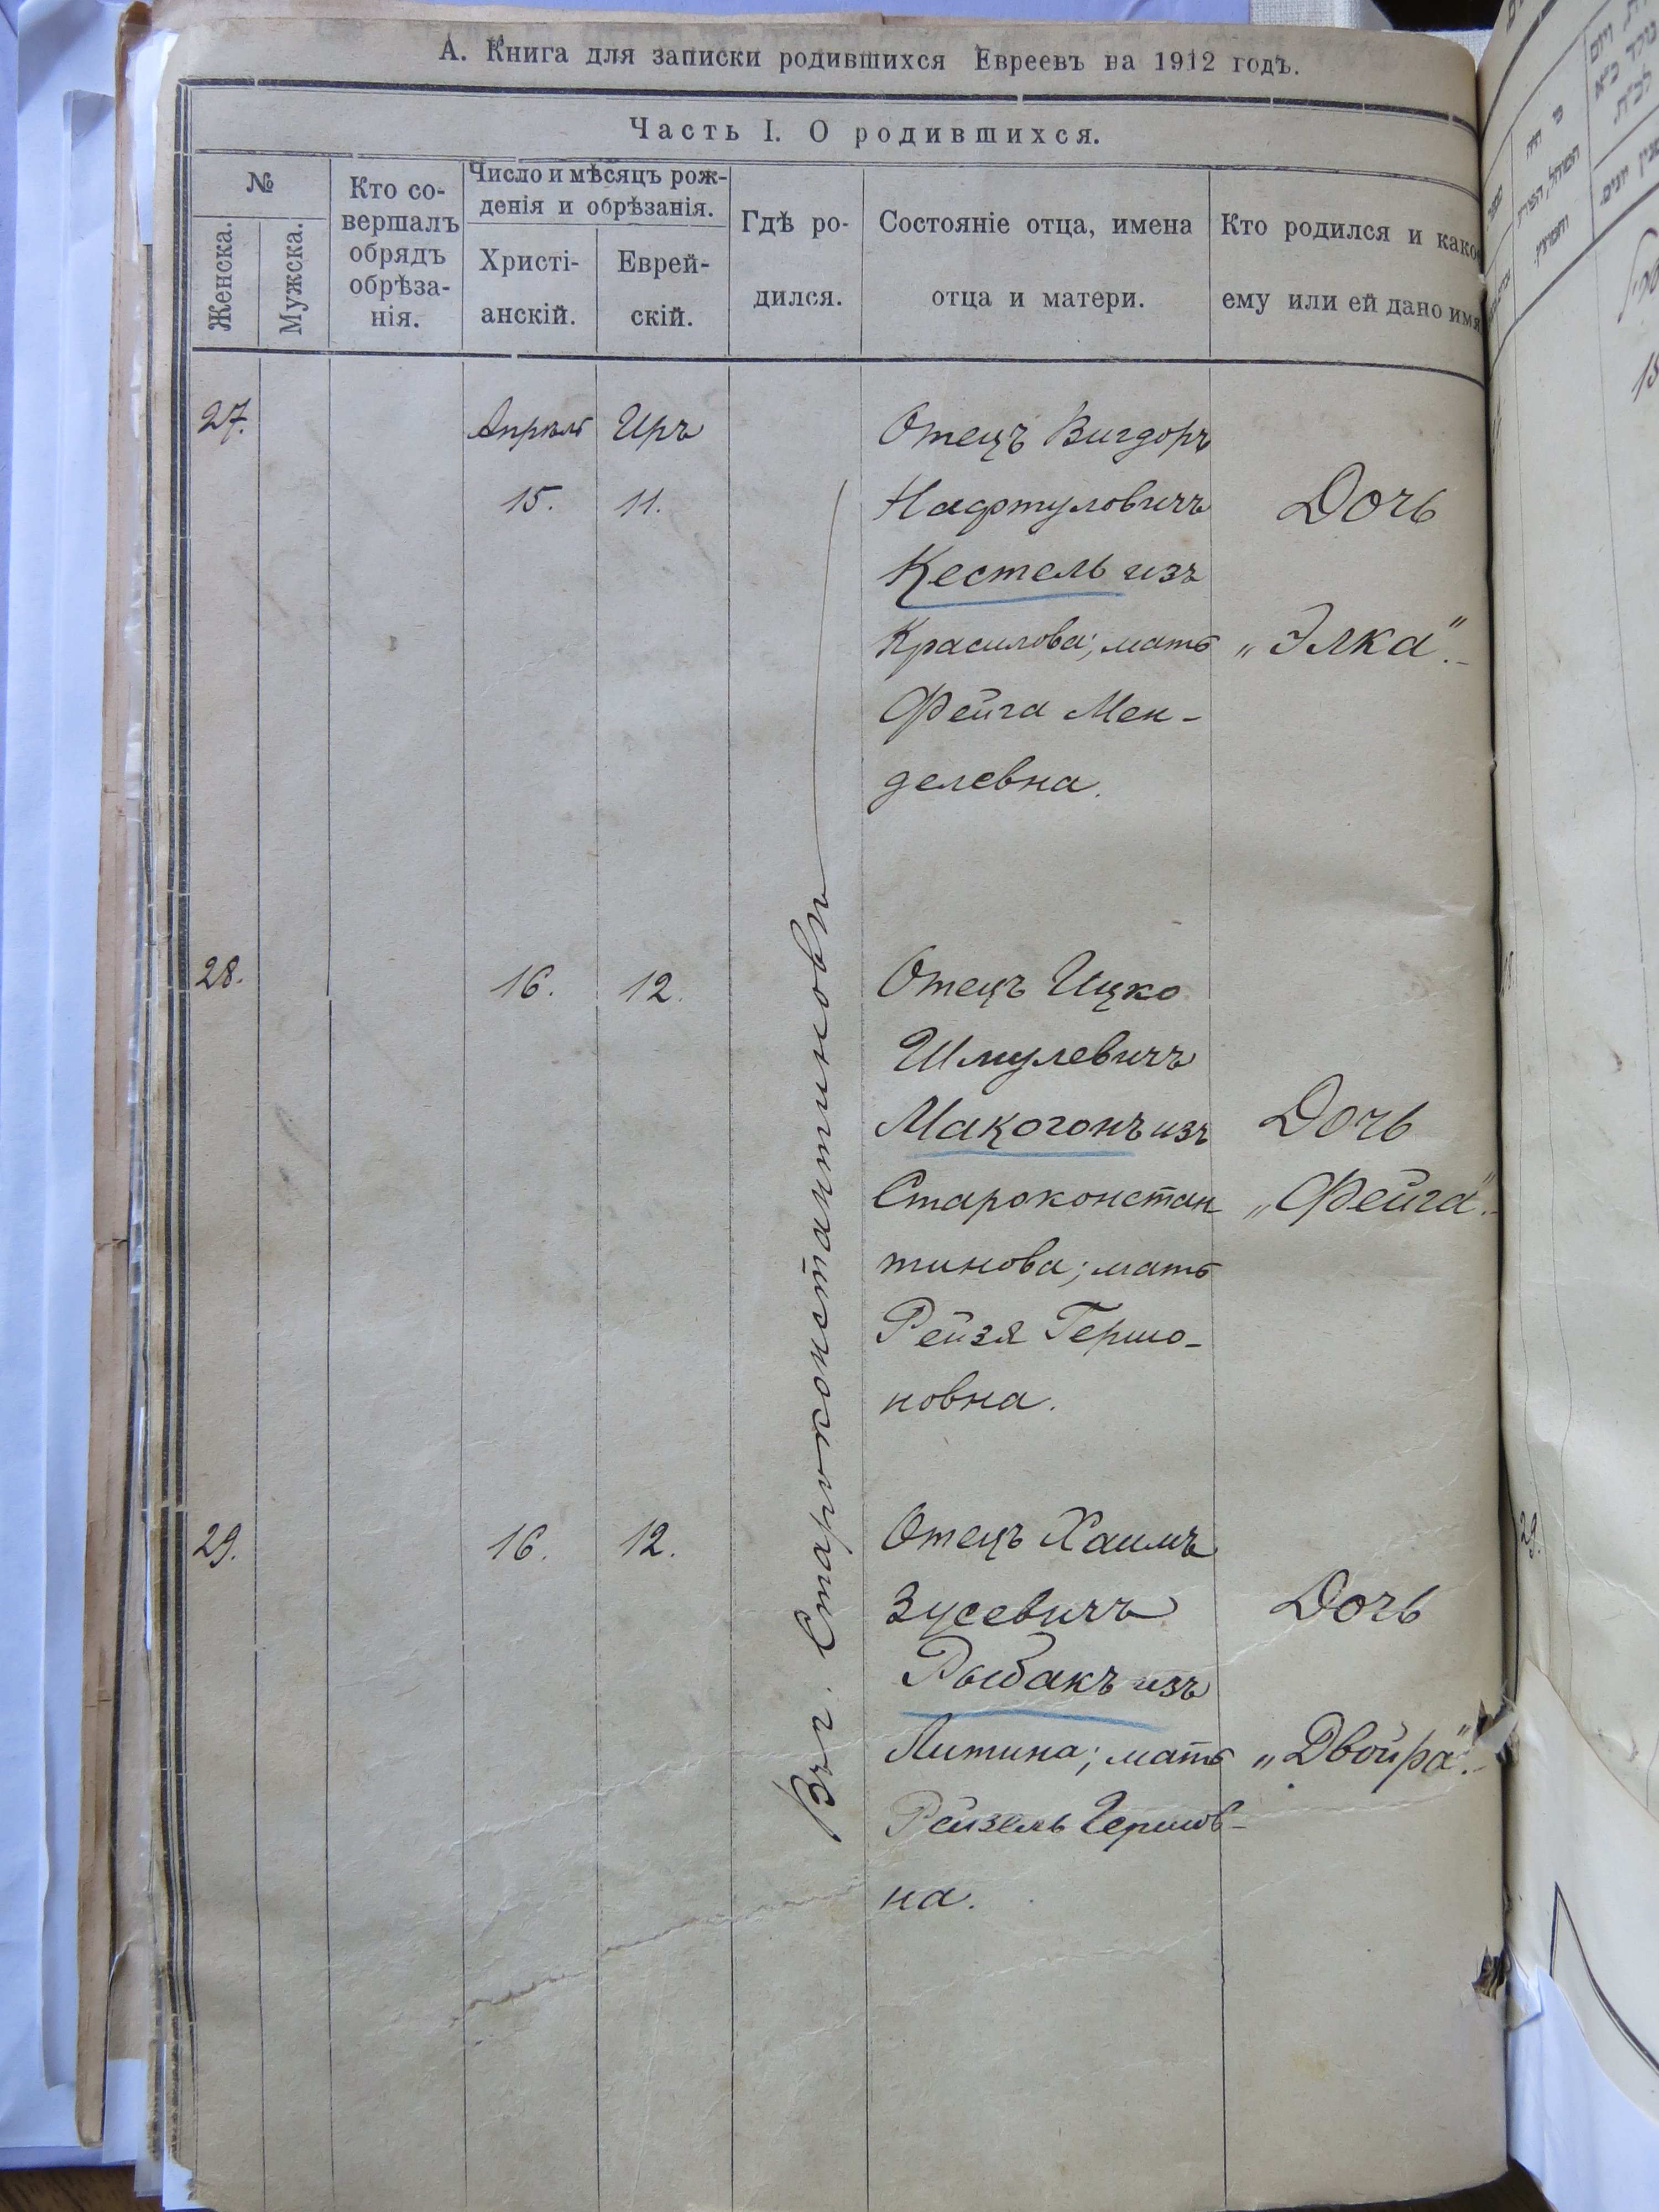 А. Книга для записки родившихся Евреевъ на 1912 годъ.
Часть I. О родившихся.
№
Женска.
Мужска.
Кто со-
вершалъ
обрядъ
обрѣза-
нія.
Число и мѣсяцъ рож-
денія и обрѣзанія.
Христі-
анскій.
Еврей-
скій.
Гдѣ ро-
дился.
Состояніе отца, имена
отца и матери.
Кто родился и какое
ему или ей дано имя
27.
Апрѣля
15.
Иръ
11.
Въ г. Староконстантиновѣ
Отецъ Вигдоръ
Нафтуловичъ
Кестель изъ
Красилова; мать
Фейга Мен-
делевна.
Дочь
„Элка".
28.
16.
12.
Отецъ Ицко
Шмулевичъ
Макогонъ изъ
Староконстан
тинова; мать
Рейзя Гершо-
новна.
Дочь
„Фейга".
29.
16.
12.
Отецъ Хаимъ
Зусевичъ
Рыбакъ изъ
Литина; мать
Рейзель Гершов-
на.
Дочь
„Двойра".
29.